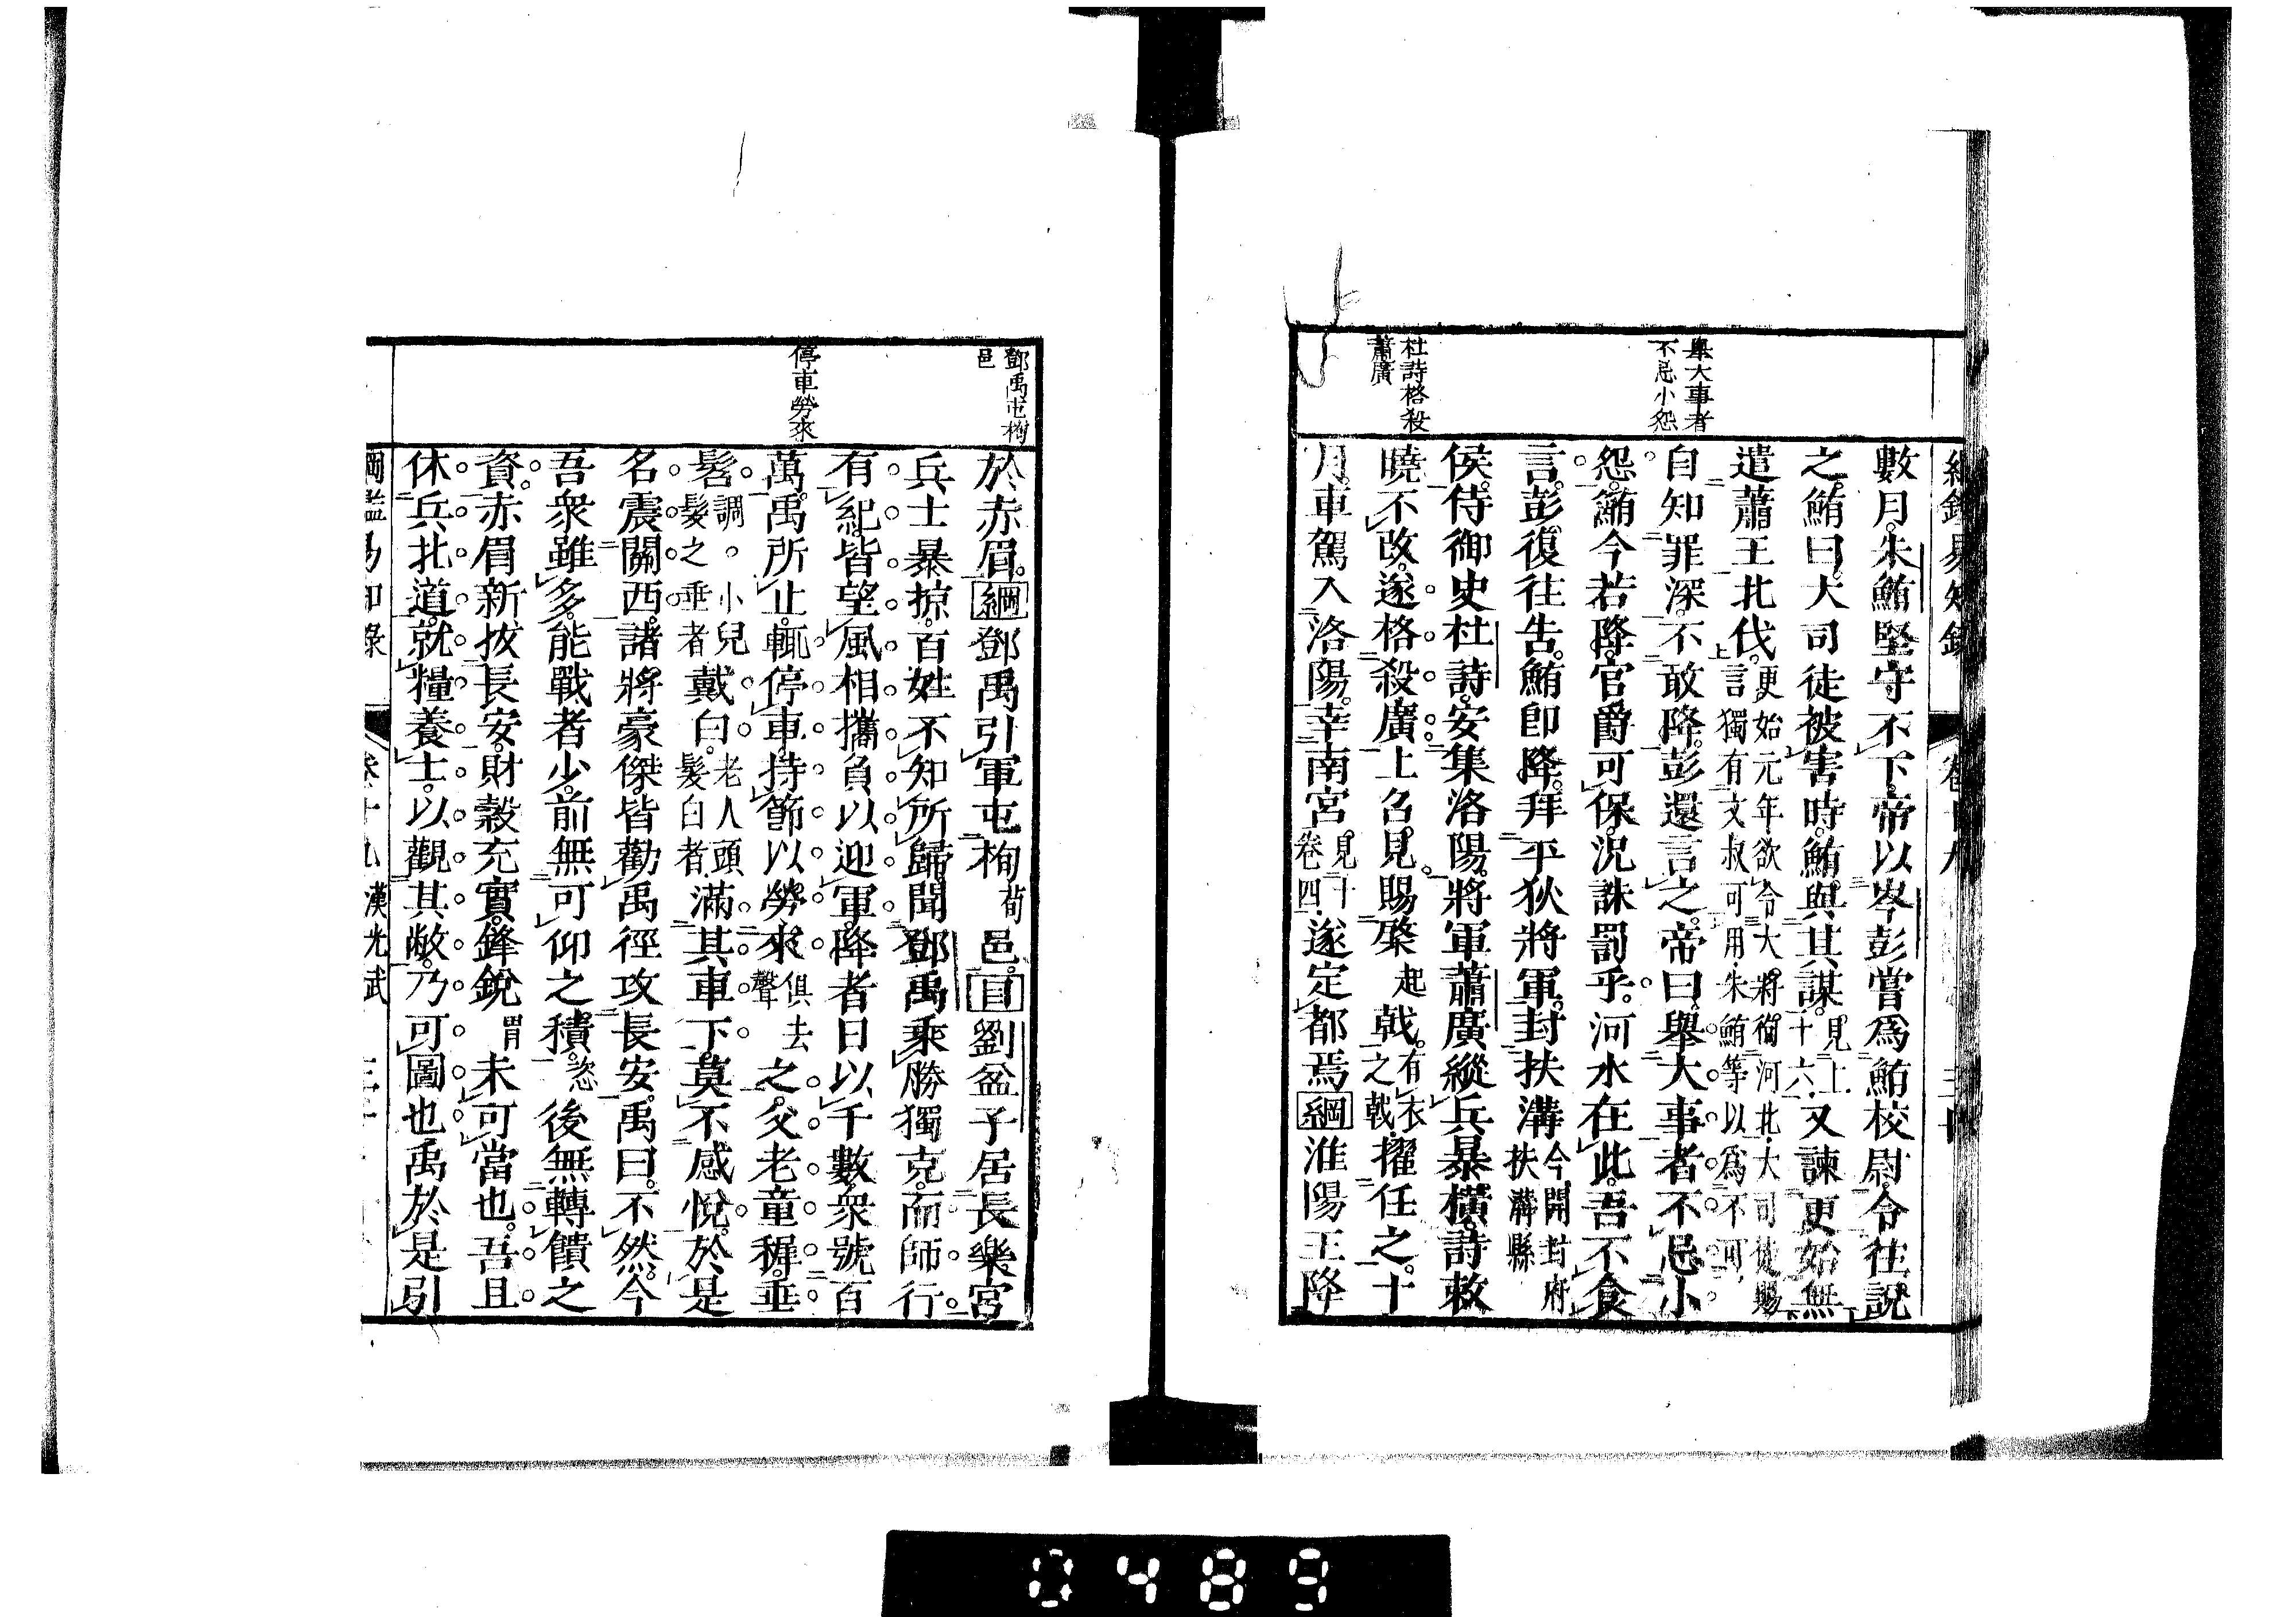 舉大事者
不忌小怨
杜詩格殺
蕭廣
數月。朱鮪堅守不下。帝以岑彭嘗爲鮪校尉。令往説
之。鮪曰。大司徒被害時。鮪與其謀。見上十六又諫更始無
遣蕭王北伐。更始元年欲令大將徇河北大司徒賜言獨有文叔可用朱鮪等以爲不可
自知罪深。不敢降。彭還言之。帝曰。舉大事者不忌小
怨。鮪今若降。官爵可保。況誅罰乎。河水在此。吾不食
言。彭復往告。鮪即降。拜平狄將軍。封扶溝今開封府扶溝縣
侯。侍御史杜詩。安集洛陽。將軍蕭廣縱兵暴橫。詩敕
曉不改。遂格殺廣。上召見。賜棨起戟。有衣之戟擢任之。十
月。車駕入洛陽。幸南宮。見十卷四遂定都焉綱淮陽王降
鄧禹屯栒
邑
停車勞來
於赤眉。綱鄧禹引軍屯栒荀邑。目劉盆子居長樂宮
兵士暴掠。百姓不知所歸。聞鄧禹乘勝獨克。而師行
有紀。皆望風相攜負以迎軍。降者日以千數。衆號百
萬。禹所止。輒停車。持節以勞來俱去聲之。父老童穉。垂
髫調。小兒髮之垂者戴白。老人頭髮白者滿其車下。莫不感悅。於是
名震關西。諸將豪傑。皆勸禹徑攻長安。禹曰。不然。今
吾衆雖多。能戰者少。前無可仰之積。恣後無轉饋之
資。赤眉新拔長安。財穀充實。鋒銳胃未可當也。吾且
休兵北道。就糧養士。以觀其敝。乃可圖也禹於是引
綱鑑易知錄 卷十九 漢光武